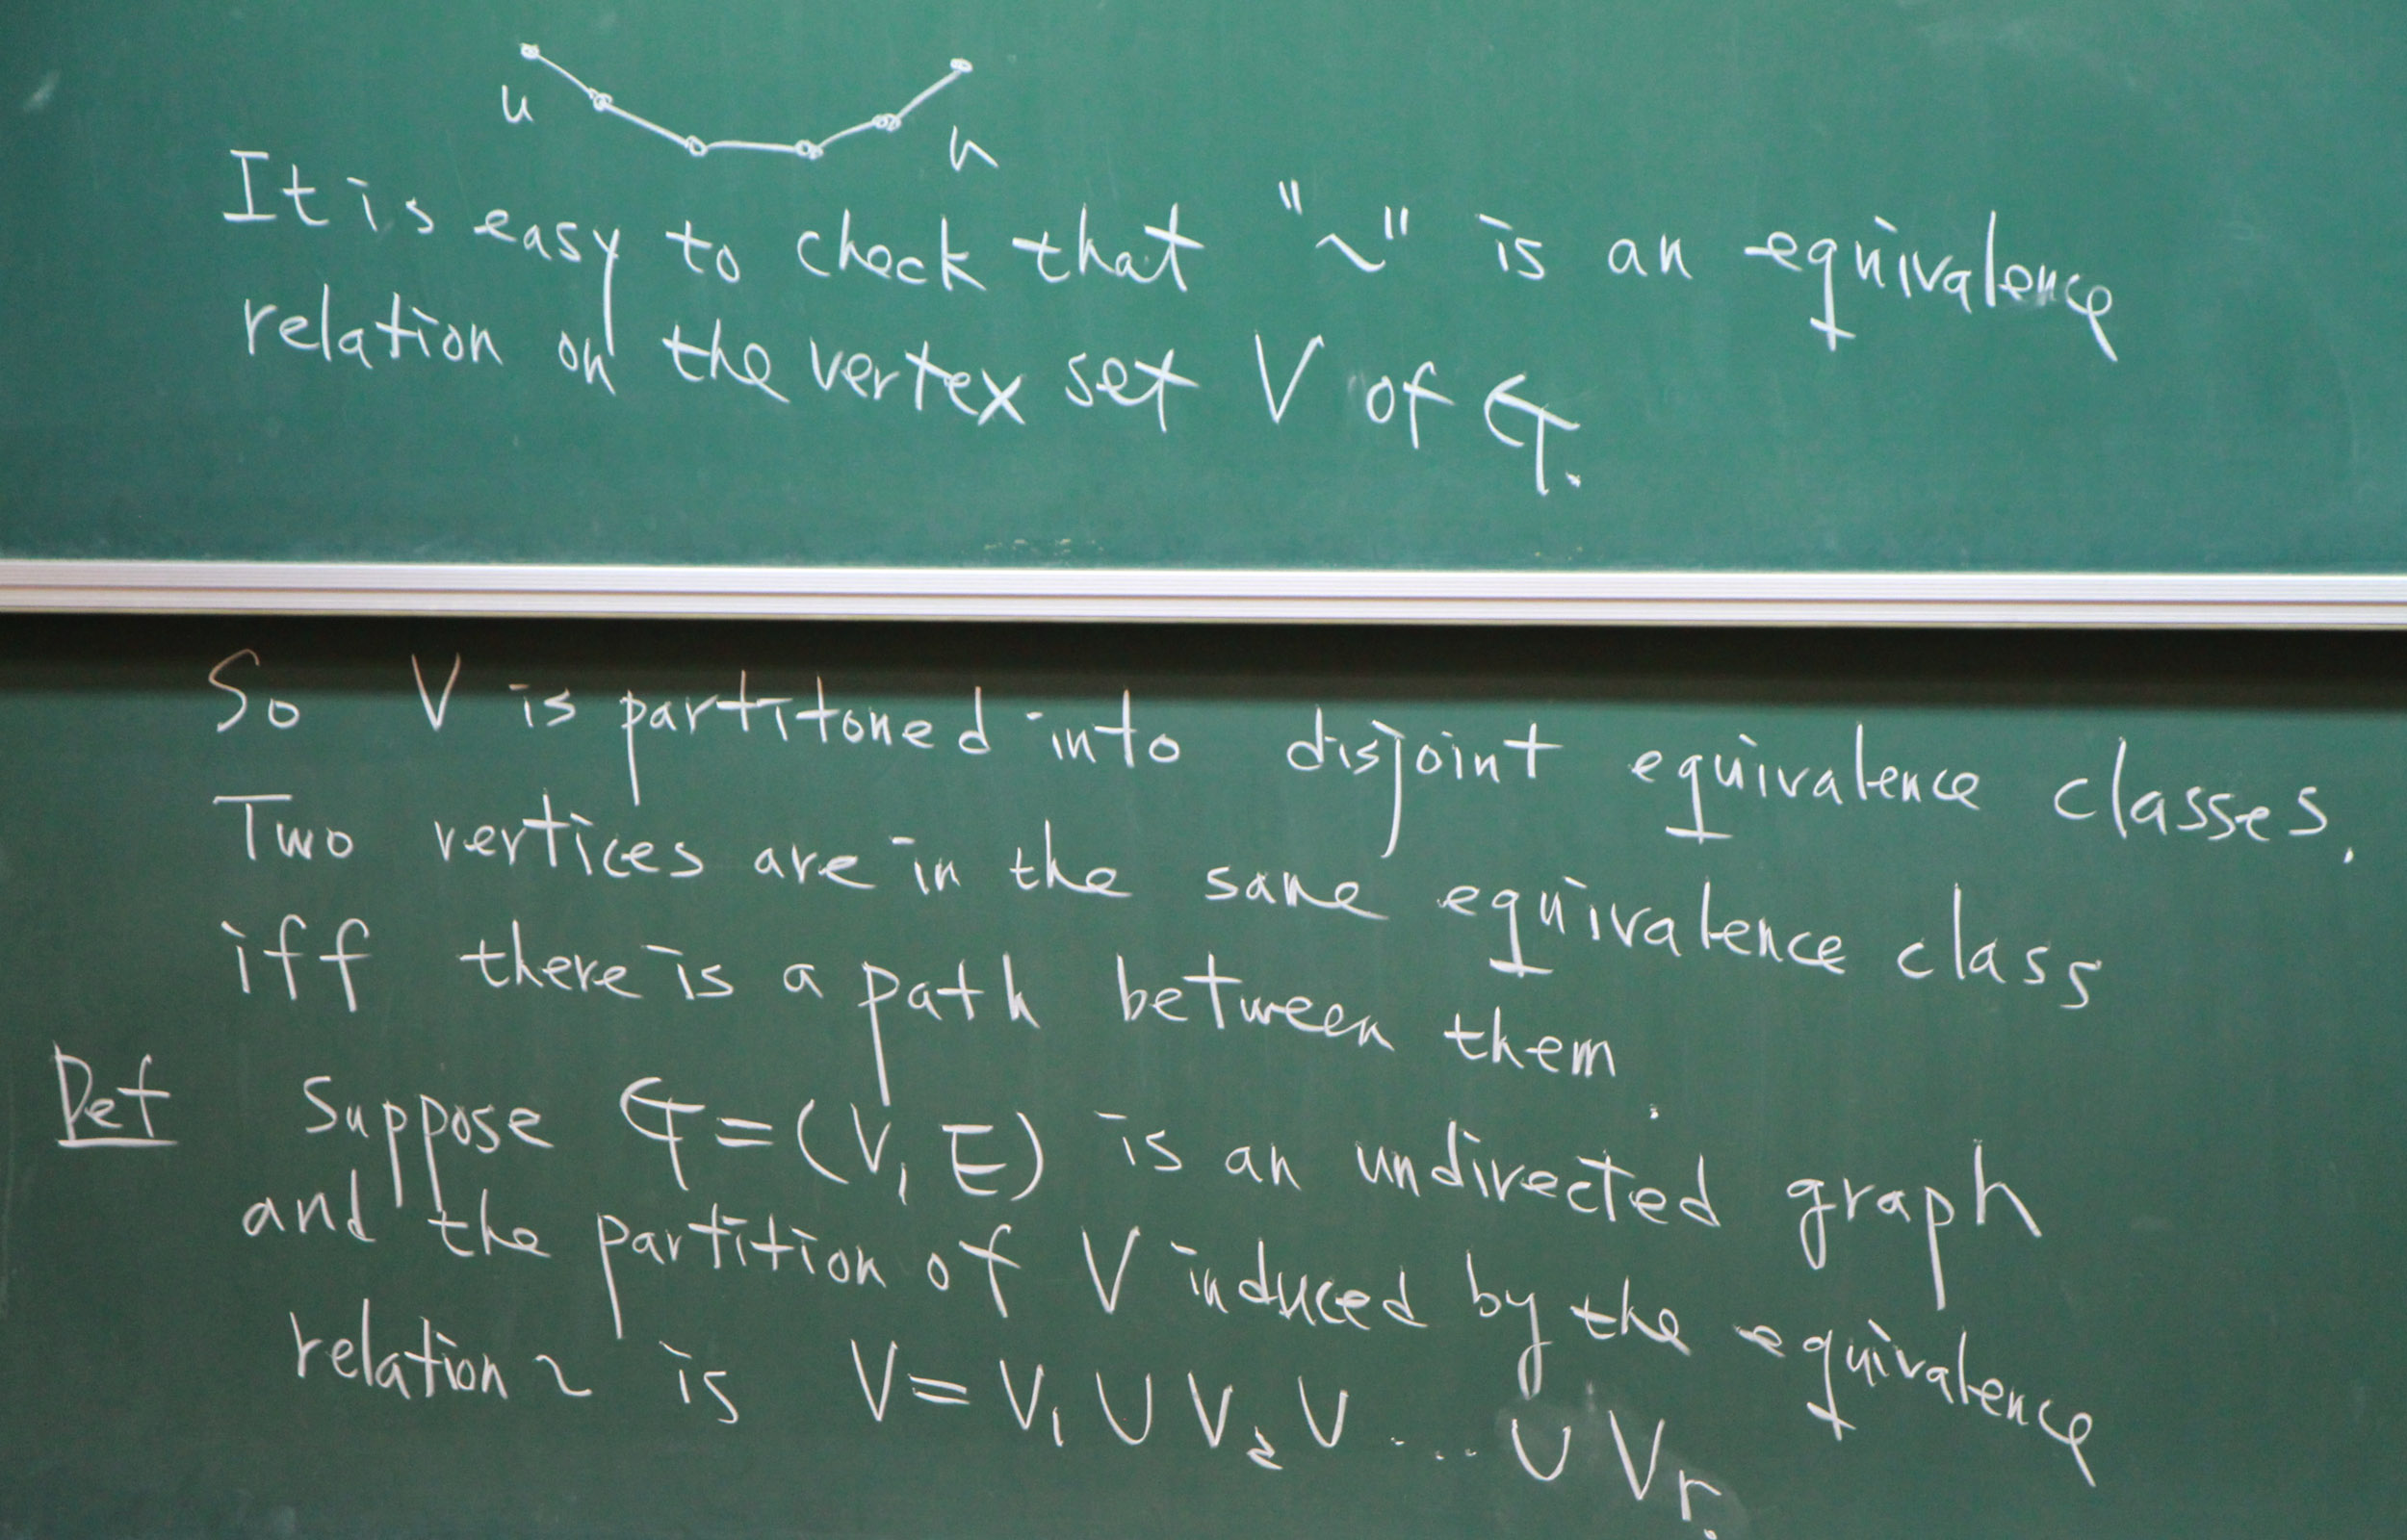 u
u
It is easy to check that "~" is an equivalence
relation on the vertex set V of G.
So V is partitoned into disjoint equivalence classes.
Two vertices are in the same equivalence class
iff there is a path between them
Def Suppose G = (V, E) is an undirected graph
and the partition of V induced by the equivalence
relation ~ is V = V₁ ∪ V₂ ∪ ... ∪ Vr.